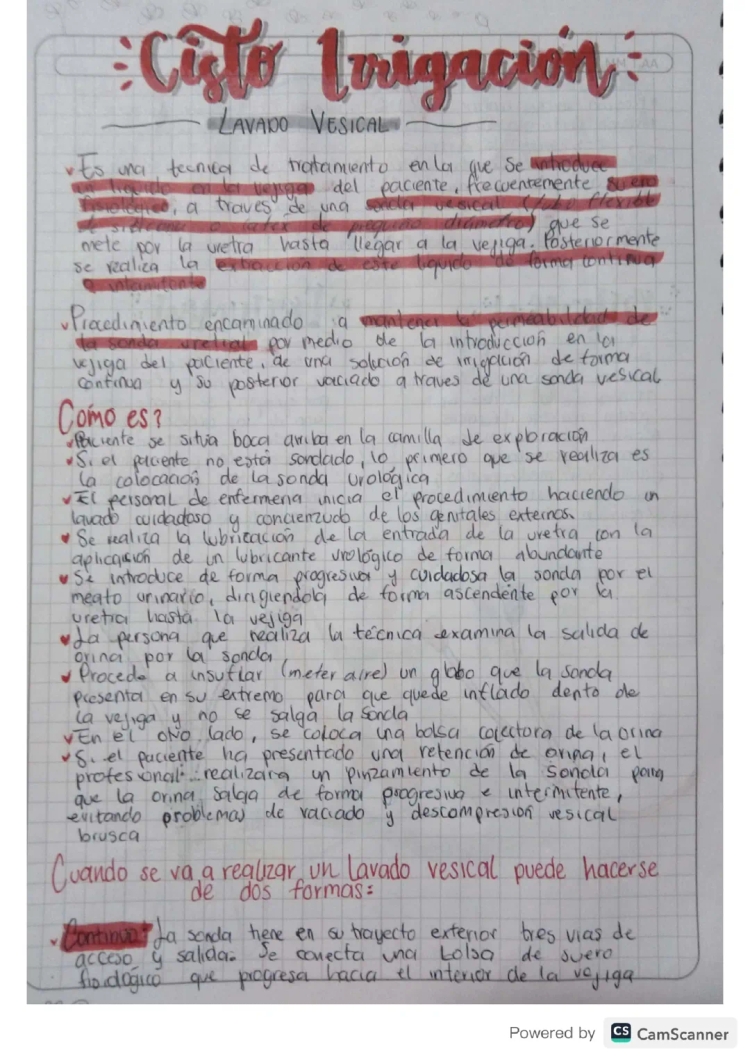 Cisto Irrigación
LAVADO VESICAL
Es una tecnica de tratamiento en la que se introduce
un liquido en la vejiga del paciente, frecuentemente suero
fisiológico, a traves de una sonda vesical (tubo flexible
de silicona o latex de pequeño diametro) que se
mete por la uretra hasta llegar a la vejiga. Posteriormente
se realiza la extraccion de este liquido de forma continua
o intermitente
Procedimiento encaminado a mantener la permeabilidad de
la sonda uretral por medio de la introducción en la
vejiga del paciente, de una solución de irrigación de forma
continua y su posterior vaciado a traves de una sonda vesical
Como es?
Paciente se situa boca arriba en la camilla de exploración
Si el paciente no está sondado, lo primero que se realiza es
la colocación de la sonda urológica
El personal de enfermeria inicia el procedimiento haciendo un
lavado cuidadoso y concienzudo de los genitales externos.
Se realiza la lubricación de la entrada de la uretra con la
aplicación de un lubricante urológico de forma abundante
Se introduce de forma progresiva y cuidadosa la sonda por el
meato urinario, dirigiendola de forma ascendente por la
uretra hasta la vejiga
La persona que realiza la técnica examina la salida de
orina por la sonda
Procede a insuflar (meter aire) un globo que la sonda
presenta en su extremo para que quede inflado dento de
la vejiga y no se salga la sonda
En el otro lado, se coloca una bolsa colectora de la orina
Si el paciente ha presentado una retención de orina, el
profesional realizara un pinzamiento de la sonda para
que la orina salga de forma progresiva e intermitente,
evitando problemas de vaciado y descompresión vesical
brusca
Cuando se va a realizar un lavado vesical puede hacerse
de dos formas:
Continua: La sonda tiene en su trayecto exterior tres vias de
acceso y salida. Se conecta una bolsa de suero
fisiológico que progresa hacia el interior de la vejiga
Powered by CS CamScanner